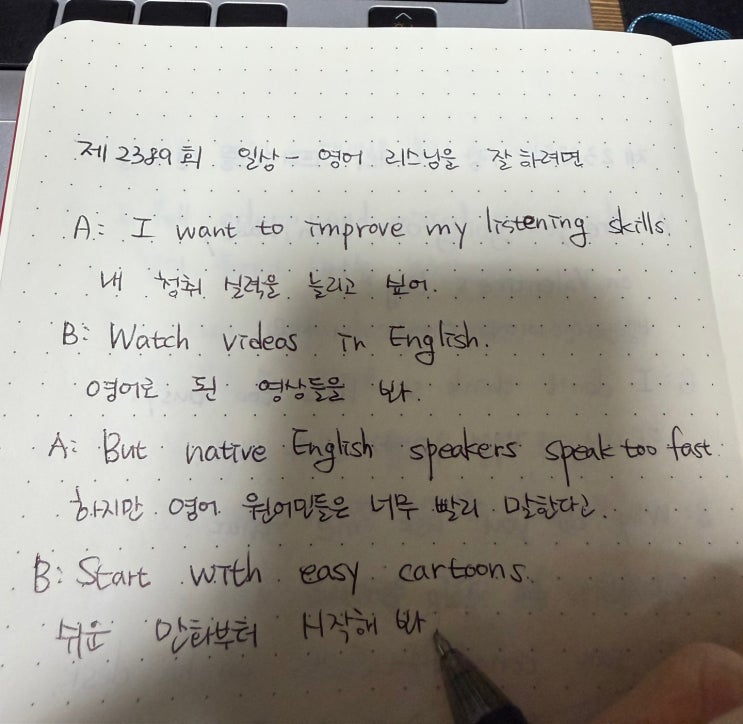 제 2389회 일상 - 영어 리스닝을 잘 하려면
A: I want to improve my listening skills.
내 청취 실력을 늘리고 싶어.
B: Watch videos in English.
영어로 된 영상들을 봐.
A: But native English speakers speak too fast.
하지만 영어 원어민들은 너무 빨리 말한다고.
B: Start with easy cartoons.
쉬운 만화부터 시작해 봐